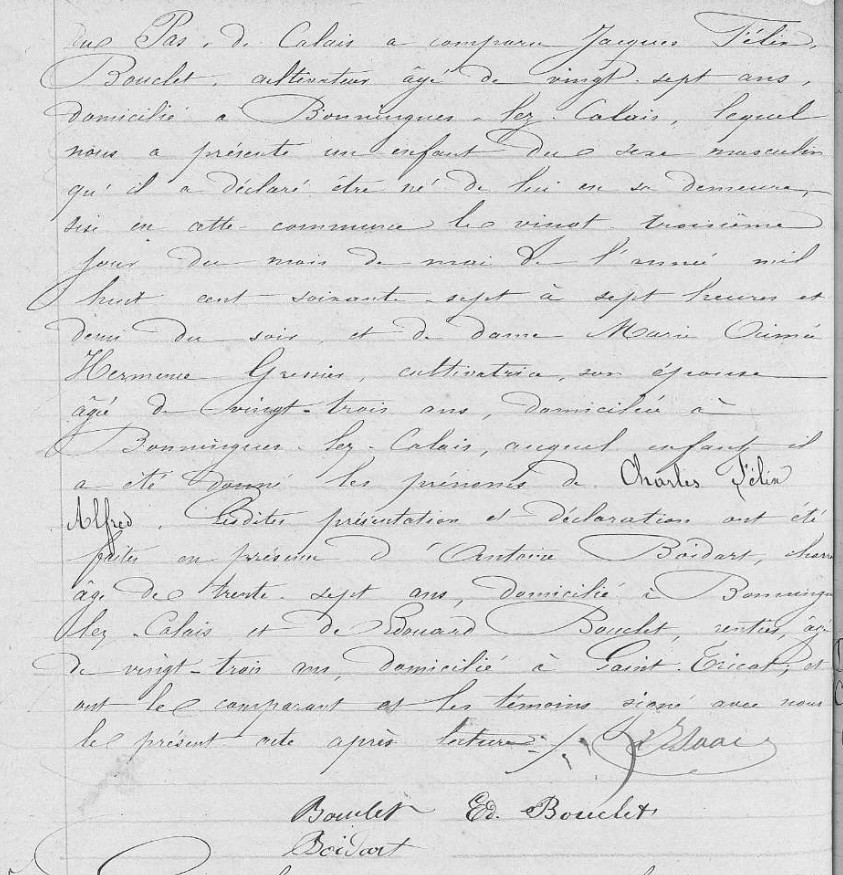 du Pas-de-Calais a comparu Jacques Félix
Bouclet, cultivateur âgé de vingt-sept ans,
domicilié à Bonningues-lez-Calais, lequel
nous a présenté un enfant du sexe masculin
qu'il a déclaré être né de lui en sa demeure,
sise en cette commune le vingt-troisième
jour du mois de mai de l'année mil
huit cent soixante-sept à sept heures et
demi du soir, et de dame Marie Aimée
Hermence Grenier, cultivatrice, son épouse
âgée de vingt-trois ans, domiciliée à
Bonningues-lez-Calais, auquel enfant il
a été donné les prénoms de Charles Félix
Alfred. Lesdites présentation et déclaration ont été
faites en présence d'Antoine Boidart,
âgé de trente-sept ans, domicilié à Bonningu
lez-Calais et de Edouard Bouclet, rentier, âgé
de vingt-trois ans, domicilié à Saint-Tricat, et
ont le comparant et les témoins signé avec nous
le présent acte après lecture.
Bouclet Ed. Bouclet
Boidart